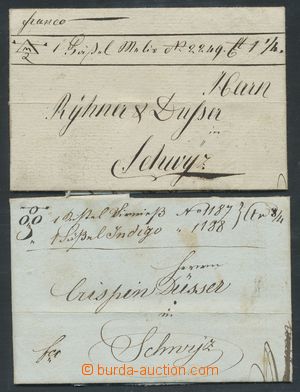 franco
1 Fäßel Melis No 2249 ℔ 1 1/4.
Herrn
Rÿhner & Dusser
in
Schwÿz
1 Keßel No 1187
1 Fäßel Indigo " 1188
Herrn
Crispin Düsser
in
Schwÿz
fco
burda-auction.com